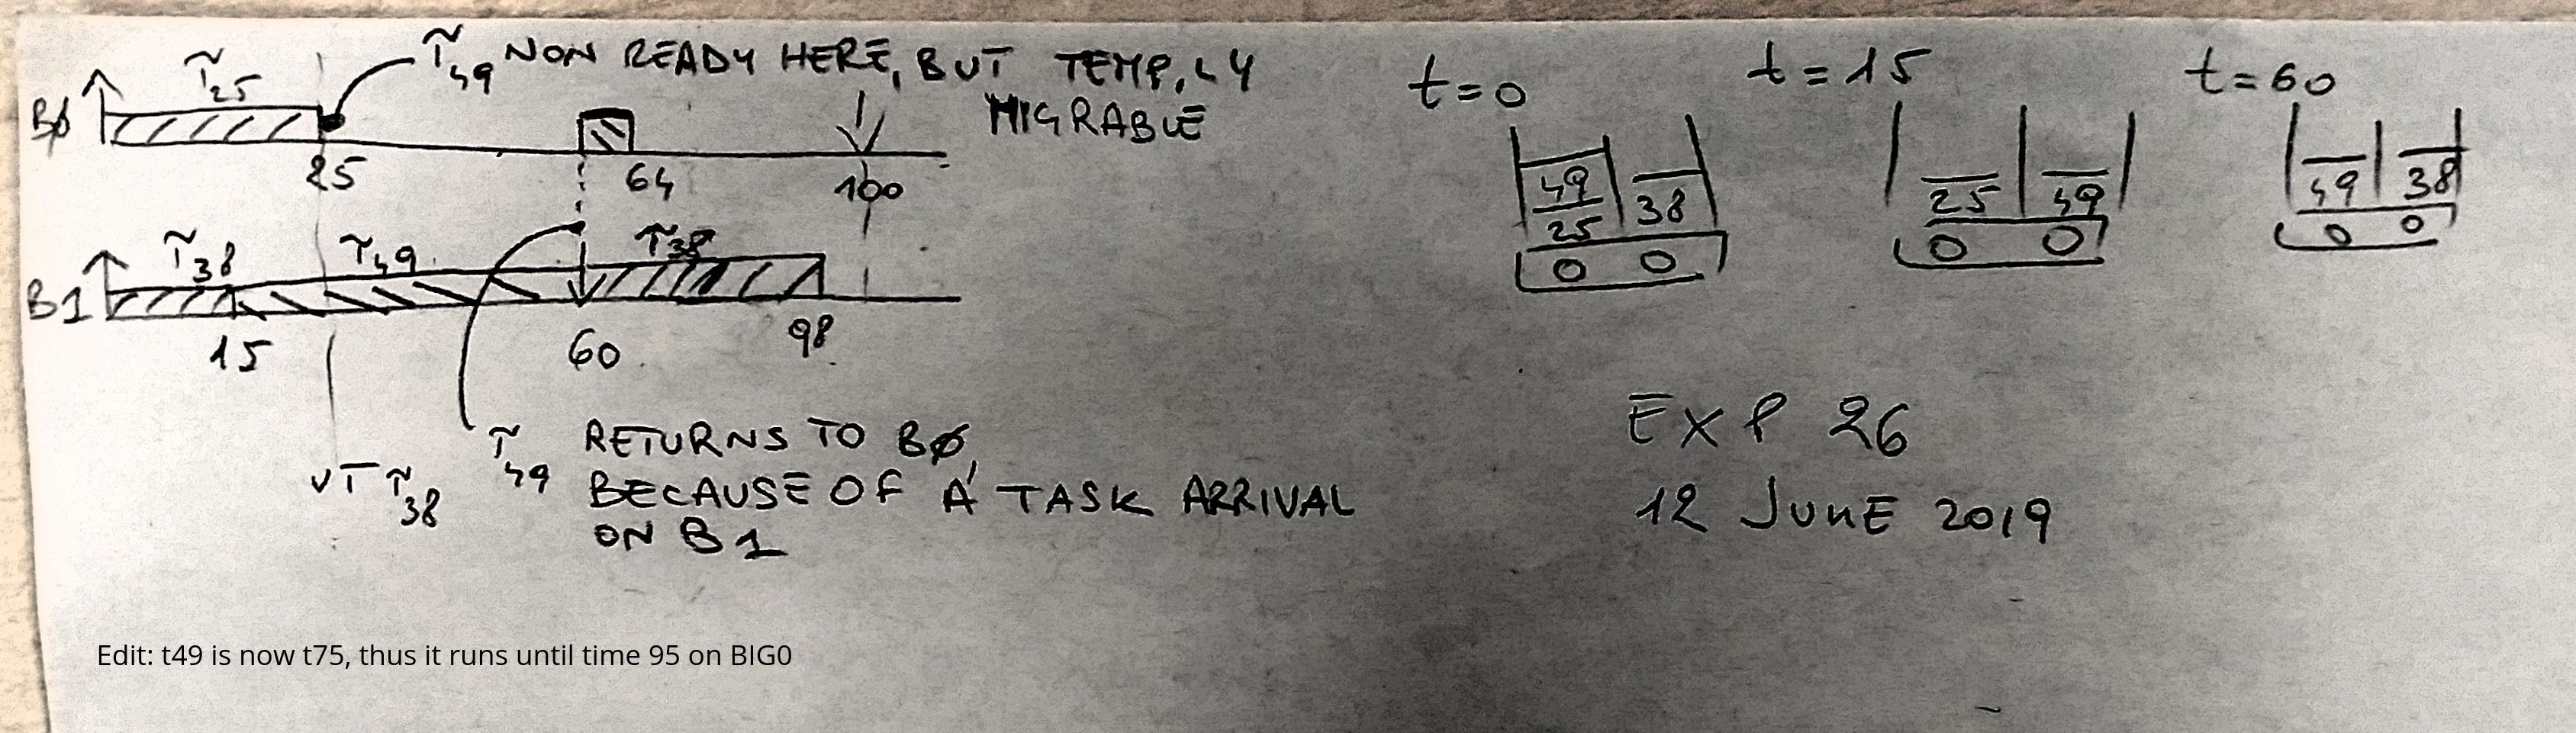 τ25
τ49 NON READY HERE, BUT TEMP.LY
MIGRABLE
BØ
25
64
100
τ38
τ49
τ38
B1
15
60
98
τ49 RETURNS TO BØ,
BECAUSE OF A TASK ARRIVAL
ON B1
VT τ38
t=0
49
25
38
0 0
t=15
25
49
0 0
t=60
49
38
0 0
EXP 26
12 JUNE 2019
Edit: t49 is now t75, thus it runs until time 95 on BIG0